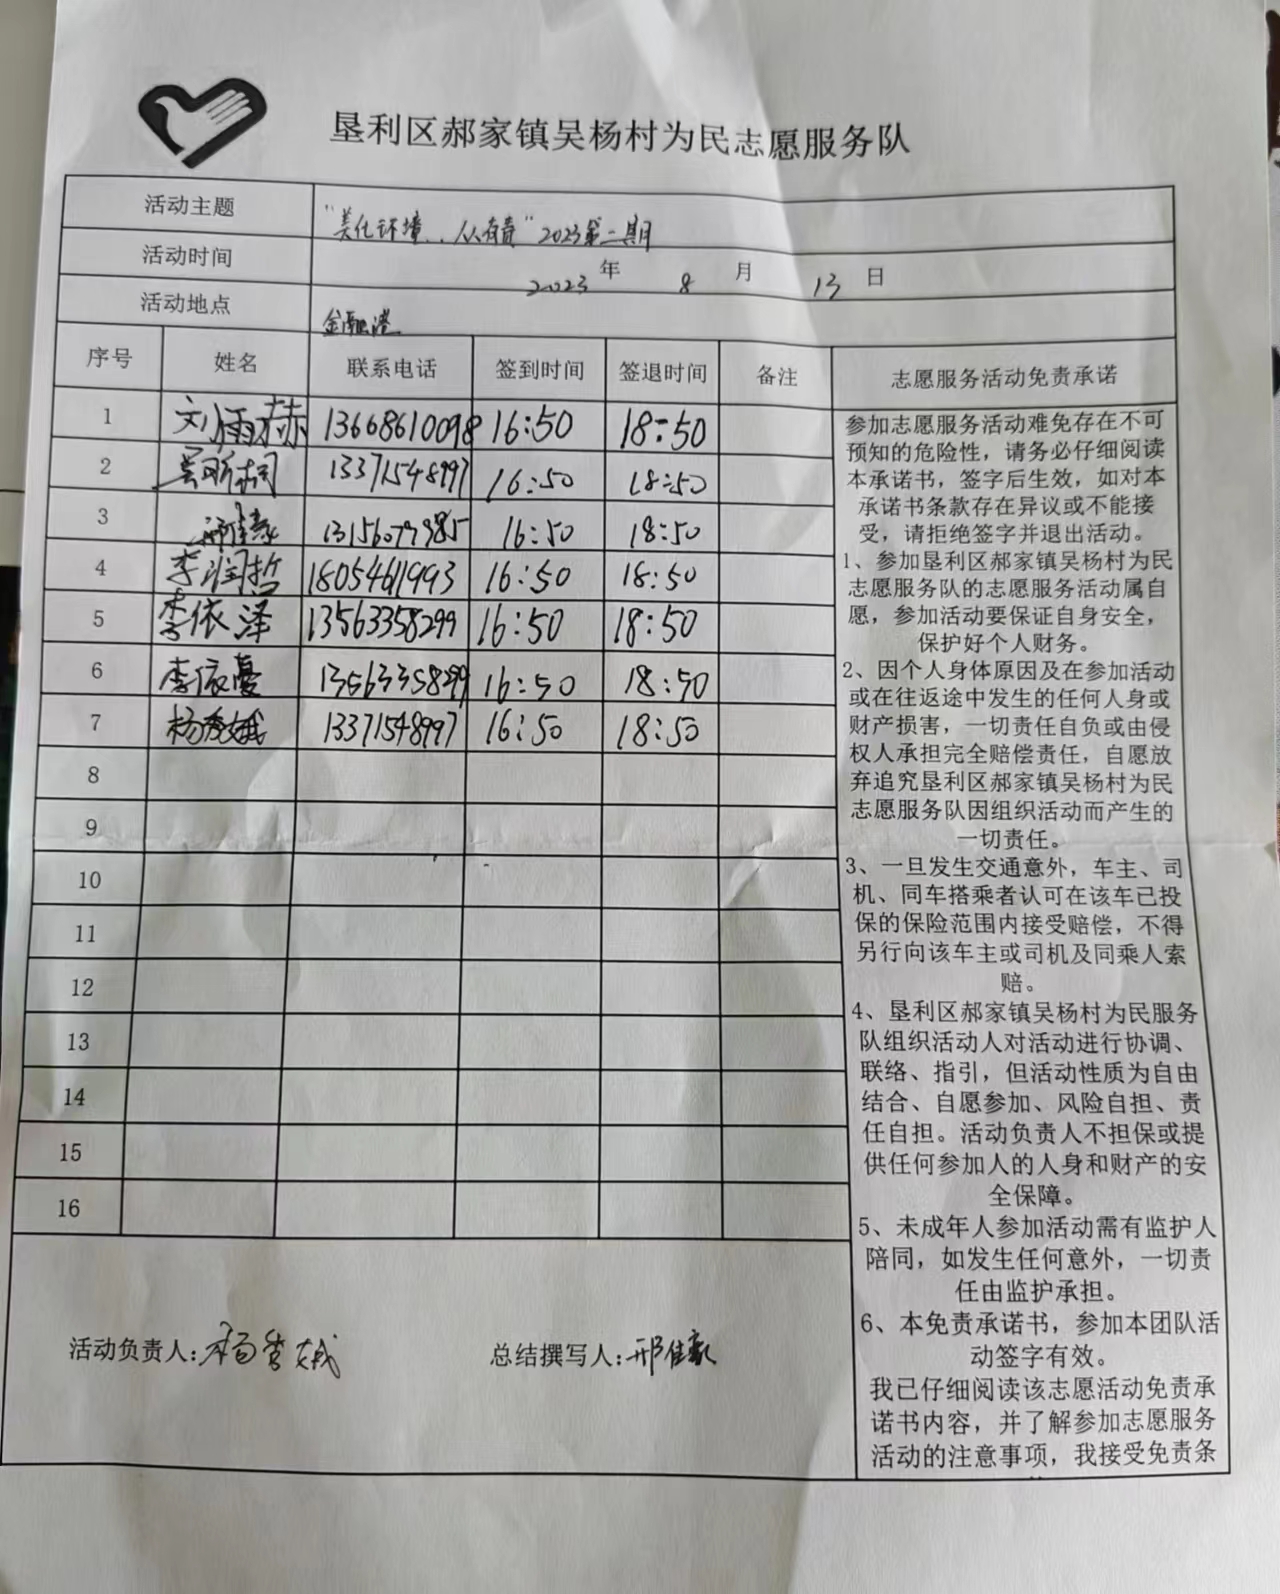 垦利区郝家镇吴杨村为民志愿服务队
活动主题 "美化环境..人人有责"2023第二期
活动时间 2023 年 8 月 13 日
活动地点 金融港
序号 姓名 联系电话 签到时间 签退时间 备注 志愿服务活动免责承诺
1 刘雨赫 13668610098 16:50 18:50
2 13371548997 16:50 18:50
3 邢佳豪 13156077985 16:50 18:50
4 李润哲 18054611993 16:50 18:50
5 李依泽 13563358299 16:50 18:50
6 李依蔓 13563358299 16:50 18:50
7 杨秀娥 13371548997 16:50 18:50
8
9
10
11
12
13
14
15
16
参加志愿服务活动难免存在不可
预知的危险性，请务必仔细阅读
本承诺书，签字后生效，如对本
承诺书条款存在异议或不能接
受，请拒绝签字并退出活动。
1、参加垦利区郝家镇吴杨村为民
志愿服务队的志愿服务活动属自
愿，参加活动要保证自身安全，
保护好个人财务。
2、因个人身体原因及在参加活动
或在往返途中发生的任何人身或
财产损害，一切责任自负或由侵
权人承担完全赔偿责任，自愿放
弃追究垦利区郝家镇吴杨村为民
志愿服务队因组织活动而产生的
一切责任。
3、一旦发生交通意外，车主、司
机、同车搭乘者认可在该车已投
保的保险范围内接受赔偿，不得
另行向该车主或司机及同乘人索
赔。
4、垦利区郝家镇吴杨村为民服务
队组织活动人对活动进行协调、
联络、指引，但活动性质为自由
结合、自愿参加、风险自担、责
任自担。活动负责人不担保或提
供任何参加人的人身和财产的安
全保障。
5、未成年人参加活动需有监护人
陪同，如发生任何意外，一切责
任由监护承担。
6、本免责承诺书，参加本团队活
动签字有效。
我已仔细阅读该志愿活动免责承
诺书内容，并了解参加志愿服务
活动的注意事项，我接受免责条
活动负责人:杨秀娥 总结撰写人:邢佳豪